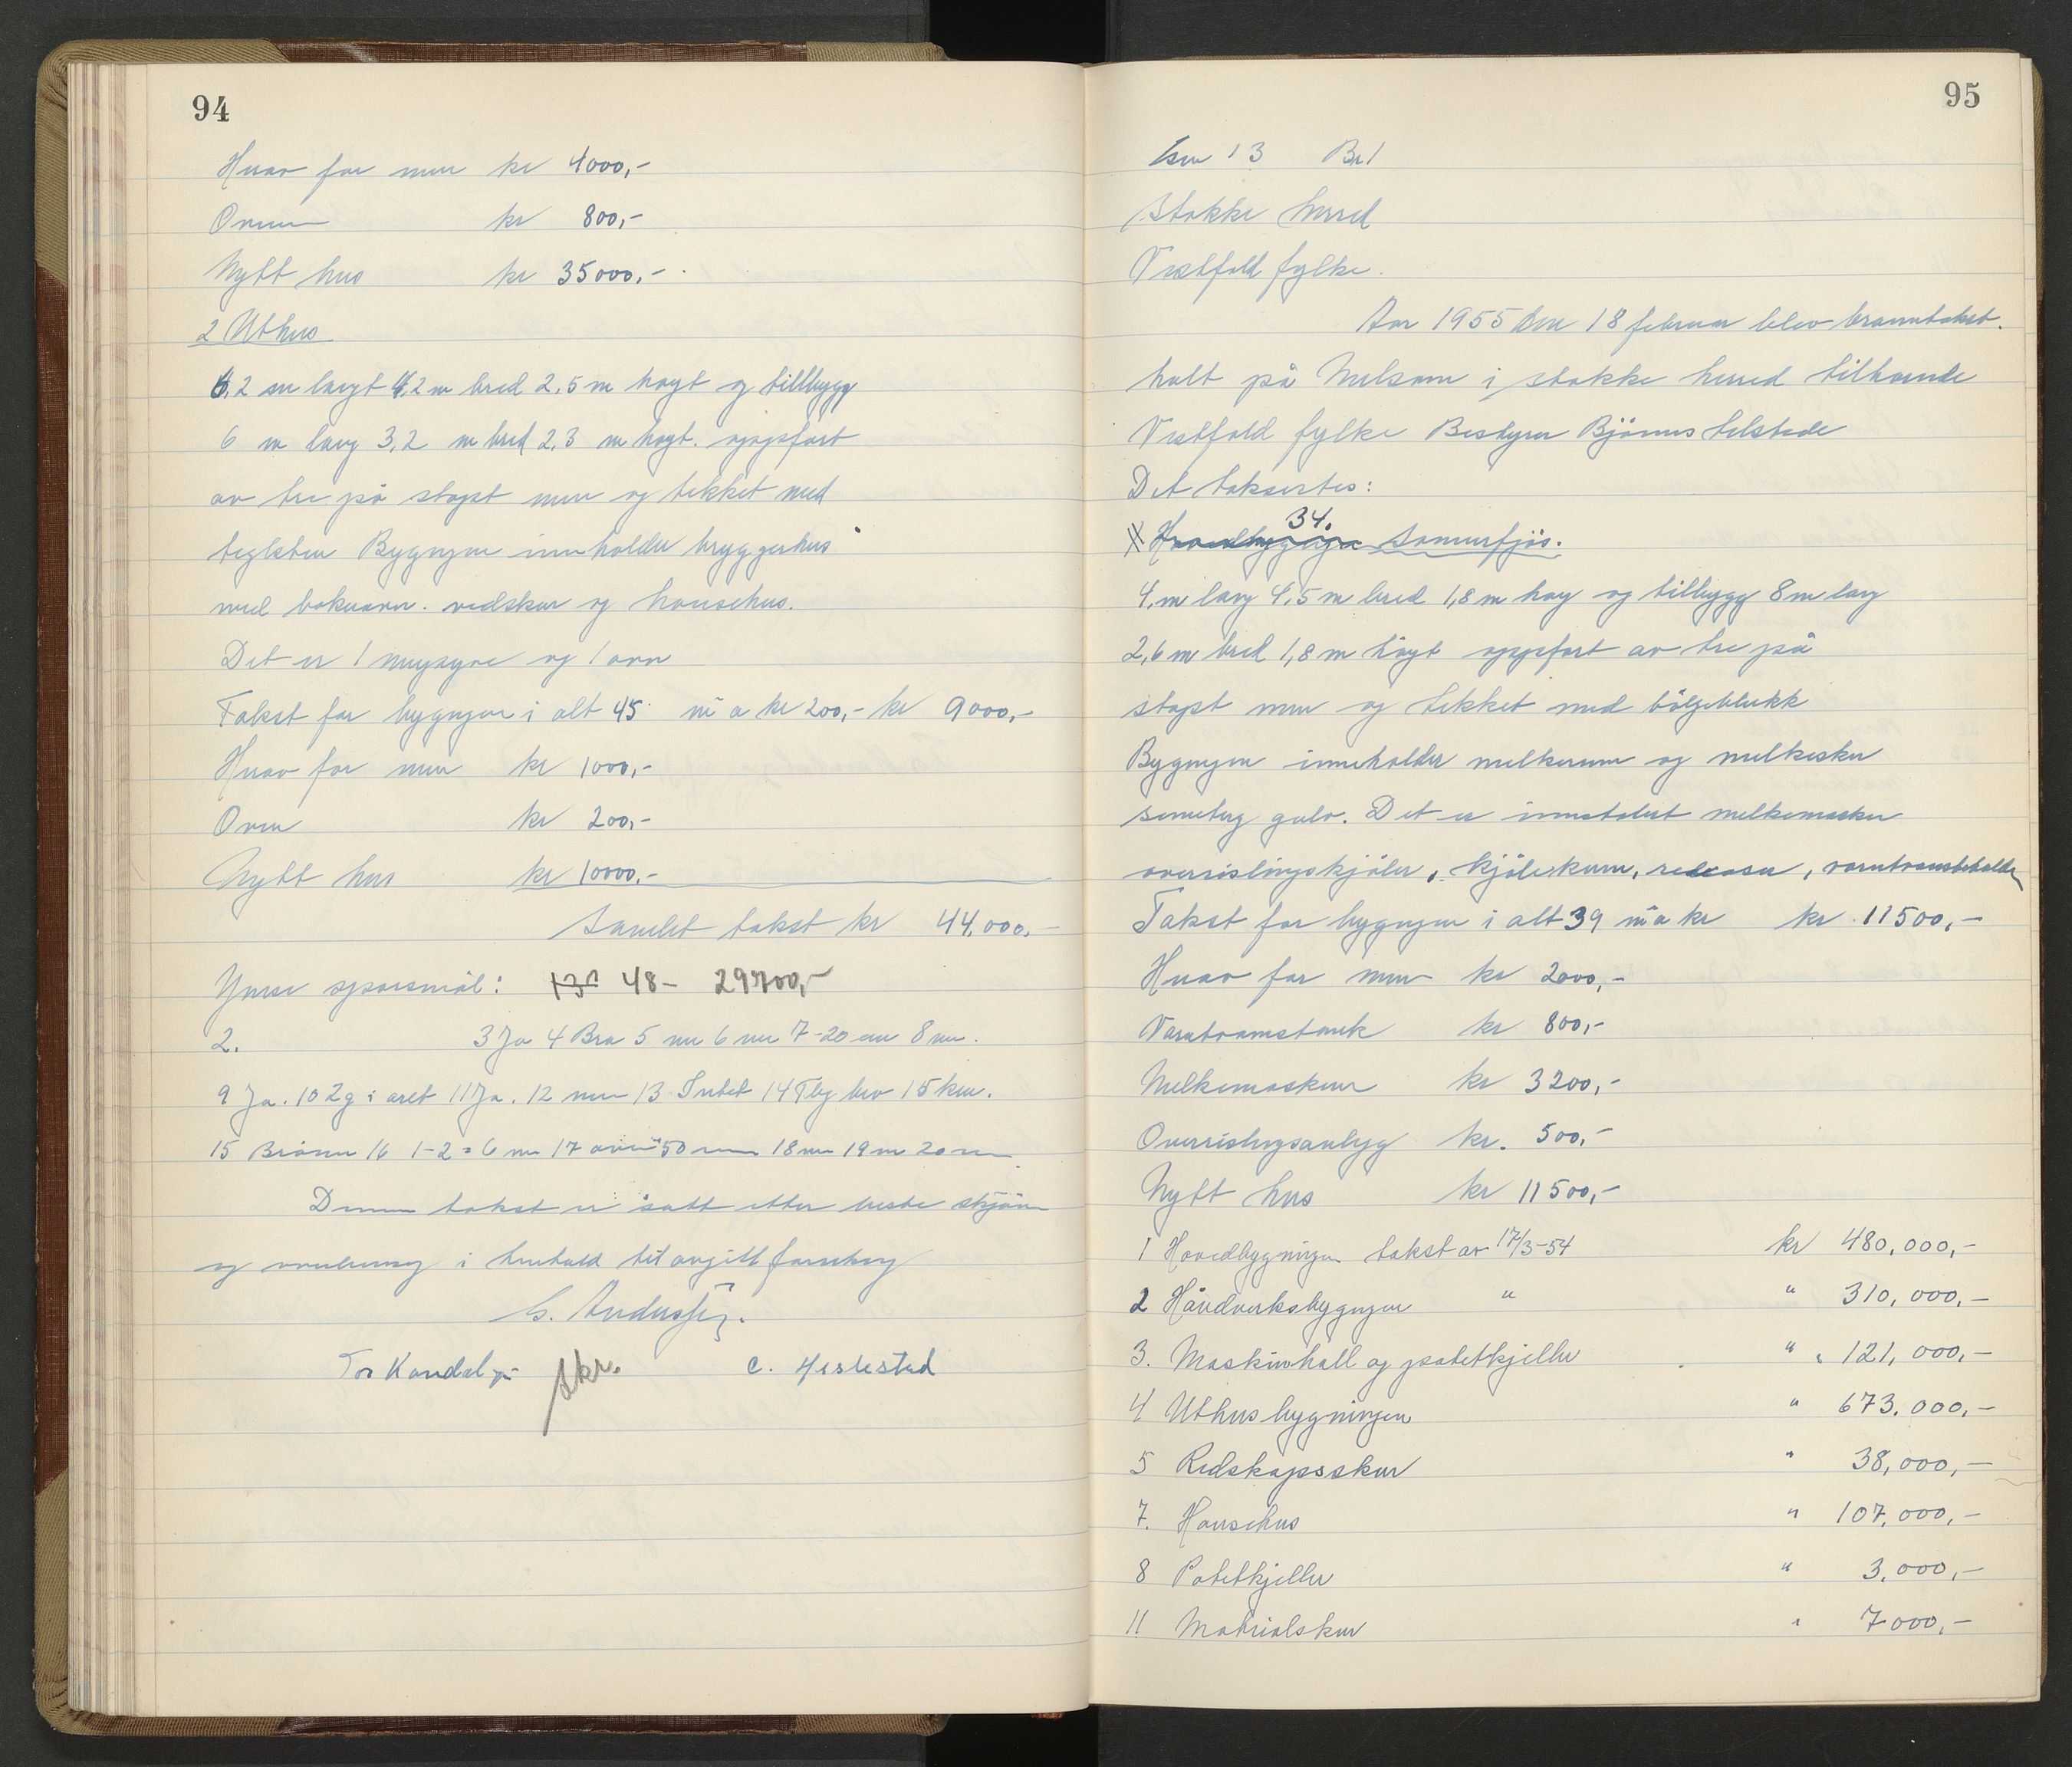 94
Herav for mur kr 4000,-
Ovnen kr 800,-
Nytt hus kr 35000,-
2 Uthus
6,2 m langt 4,2 m bred 2,5 m høyt og tillbygg
6 m lang 3,2 m bred 2,3 m høyt. oppført
av tre på støpt mur og tekket med
teglsten Bygngen innholder bryggerhus
med bakeovn. vedskur og hønsehus.
Det er 1 murpipe og 1 ovn
Takst for bygngen i alt 45 m² a kr 200,- kr 9000,-
Herav for mur kr 1000,-
Ovn kr 200,-
Nytt hus kr 10000,-
Samlet takst kr 44.000,-
Ymse spørsmål: 48- 29700,-
2. 3 Ja 4 Bra 5 nei 6 nei 7-20 m 8 nei.
9 Ja. 10 2 g i aret 11 Ja. 12 nei 13 Intet 14 Tbg brv 15 km.
15 Brønn 16 1-2 = 6 m 17 over 50 m 18 nei 19 nei 20 nei
Denne takst er satt etter beste skjønn
og vurdering i henhold til avgitt forsikring
G. Anderssen.
Tor Kandal skr. C. Heslestad
95
Gnr 13 Br 1
Stokke herred
Vestfold fylke.
Aar 1955 den 18 februar blev branntakst.
holt på Melsom i Stokke herred tilhørende
Vestfold fylke Bestyrer Bjørnes telstede
Det taksertes:
34.
Hovedbygningen Sommerfjøs.
4, m lang 4,5 m bred 1,8 m høy og tilbygg 8 m lang
2,6 m bred 1,8 m høyt oppført av tre på
støpt mur og tekket med bølgeblekk
Bygngen inneholder melkerum og melkeskur
sementeng gulv. Det er innstalert melkemaskin
overrislingskjøler, kjølekum, releaser, varmtvansbeholder
Takst for bygngen i alt 39 m² a kr kr 11500,-
Herav for mur kr 2000,-
Varmtvannstank kr 800,-
Melkemaskiner kr 3200,-
Overrislingsanlegg kr. 500,-
Nytt hus kr 11500,-
1 Hovedbygningen takst av 17/3-54 kr 480,000,-
2 Håndverksbygngen " " 310,000,-
3. Maskinhall og potetkjeller " 121,000,-
4 Uthusbygningen " 673.000,-
5 Redskapsskur " 38,000,-
7. Hønsehus " 107.000,-
8 Potetkjeller " 3.000,-
11 Matrialskur " 7000,-